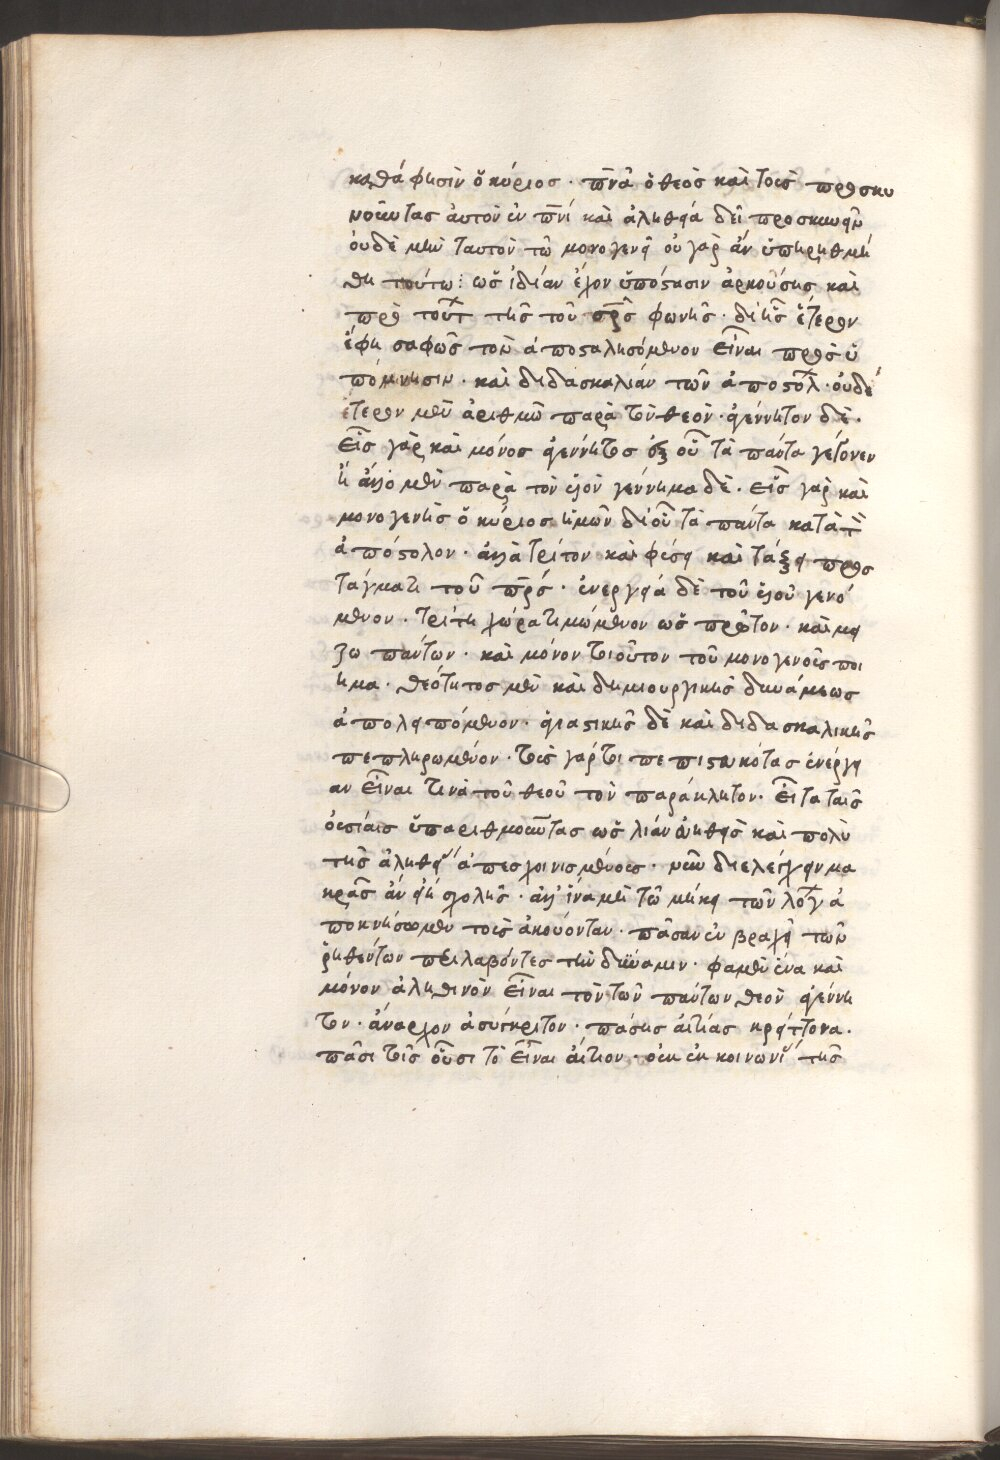 καθά φησὶν ὁ κύριος · π̅ν̅α̅ ὁ θεὸς καὶ τοὺς προσκυ
νοῦντας ἀυτὸν ἐν π̅ν̅ι̅ καὶ ἀληθεία δεῖ προσκυνεῖν
ὀυδὲ μὴν ταυτὸν τῶ μονογενεῖ οὐ γὰρ ἀν ὑπηριθμή
θη τούτω : ὡς ἰδίαν ἔχον ὑπόστασιν ἀρκούσης καὶ
πρὸ τούτ τῆς τοῦ σ̅ρ̅ς̅ φωνῆς · δι ἧς ἕτερον
ἔφη σαφῶς τὸν ἀποσταλησόμενον εἶναι πρὸς ὑ
πόμνησιν · καὶ διδασκαλίαν τῶν ἀποστόλ · ὀυδὲ
ἕτερον μὲν ἀριθμῶ παρὰ τὸν θεὸν · ἀγέννητον δὲ ·
εἷς γὰρ καὶ μόνος ἀγέννητος ἐξ οὗ τὰ πάντα γέγονεν
ἢ ἄλλο μὲν παρὰ τὸν υἱὸν γέννημα δὲ · εἷς γὰρ καὶ
μονογενὴς ὁ κύριος ἡμῶν δι οὗ τὰ πάντα κατὰ τ
ἀπόστολον · ἀλλὰ τρίτον καὶ φύσει καὶ τάξει προσ
τάγματι τοῦ π̅ρ̅ς̅ · ἐνεργεία δὲ τοῦ υἱοῦ γενό
μενον · τρίτη χώρα τιμώμενον ὡς πρῶτον · καὶ μεῖ
ζω πάντων · καὶ μόνον τοιοῦτον τοῦ μονογενοῦς ποι
ημα · θεότητος μὲν καὶ δημιουργικῆς δυνάμεως
ἀπολειπόμενον · ἁγιαστικῆς δὲ καὶ διδασκαλικῆς
πεπληρωμένον · τοὺς γάρ τοι πεπιστευκότας ἐνέργει
αν εἶναι τινὰ τοῦ θεοῦ τὸν παράκλητον · εἶτα ταῖς
ὀυσίαις ὑπαριθμοῦντας ὡς λίαν ἐυήθεις καὶ πολὺ
τῆς ἀληθεί ἀπεσχοινισμένους · νῦν διελέγχειν μα
κρᾶς ἀν εἴη σχολῆς · ἀλλ ἵνα μὴ τῶ μήκει τῶν λόγ ἀ
ποκναίσωμεν τοὺς ἀκούοντας · πᾶσαν ἐν βραχεῖ τῶν
ῥηθέντων περιλαβόντες τὴν δύναμιν · φαμὲν ἕνα καὶ
μόνον ἀληθινὸν εἶναι τὸν τῶν πάντων θεὸν ἀγέννη
τον · ἄναρχον ἀσύγκριτον · πάσης ἀιτίας κρείττονα ·
πᾶσι τοῖς οὖσι τὸ εἶναι ἄιτιον · ὀυκ ἐκ κοινωνί τῆς